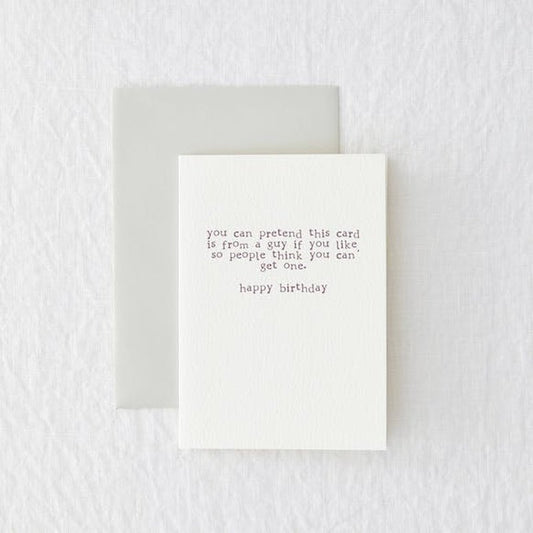 you can pretend this card
is from a guy if you like,
so people think you can
get one.
happy birthday